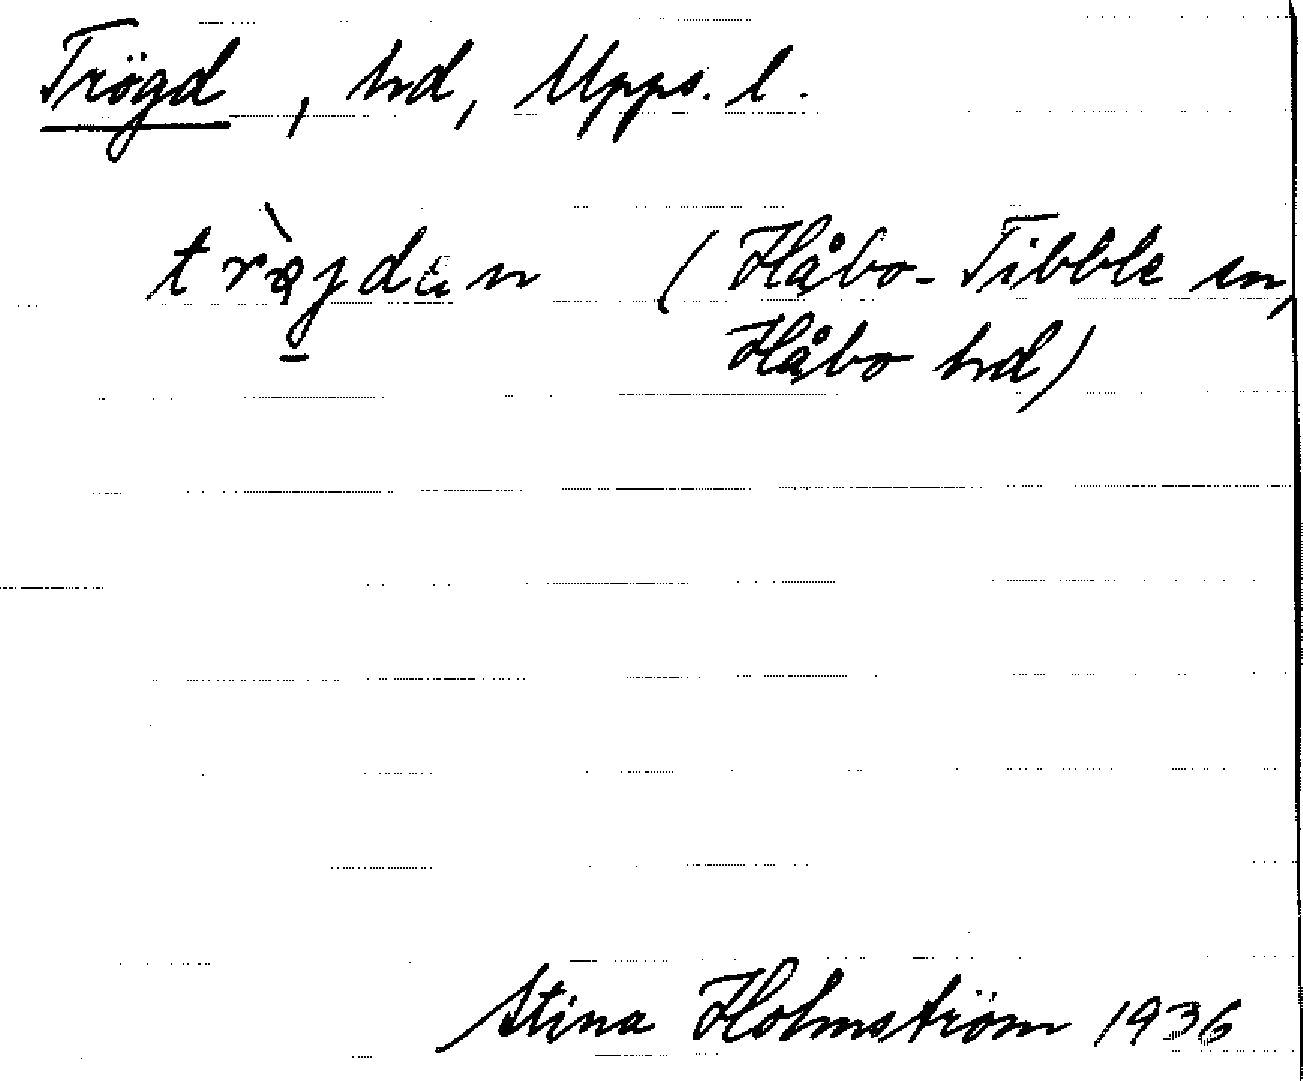 Trögd, hd, Upps. l.
(Håbo-Tibble sn,
Håbo hd)
Stina Holmström 1936